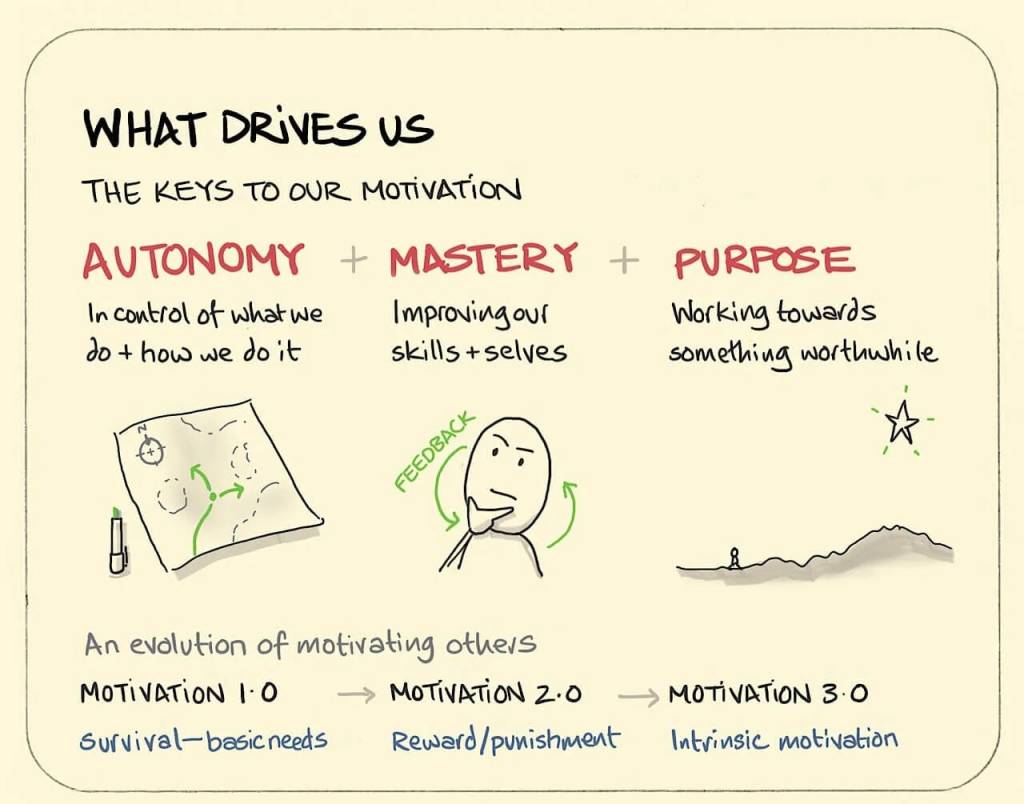 WHAT DRIVES US
THE KEYS TO OUR MOTIVATION
AUTONOMY + MASTERY + PURPOSE
In control of what we
do + how we do it
Improving our
skills + selves
Working towards
something worthwhile
N
FEEDBACK
An evolution of motivating others
MOTIVATION 1.0 → MOTIVATION 2.0 → MOTIVATION 3.0
Survival – basic needs
Reward/punishment
Intrinsic motivation